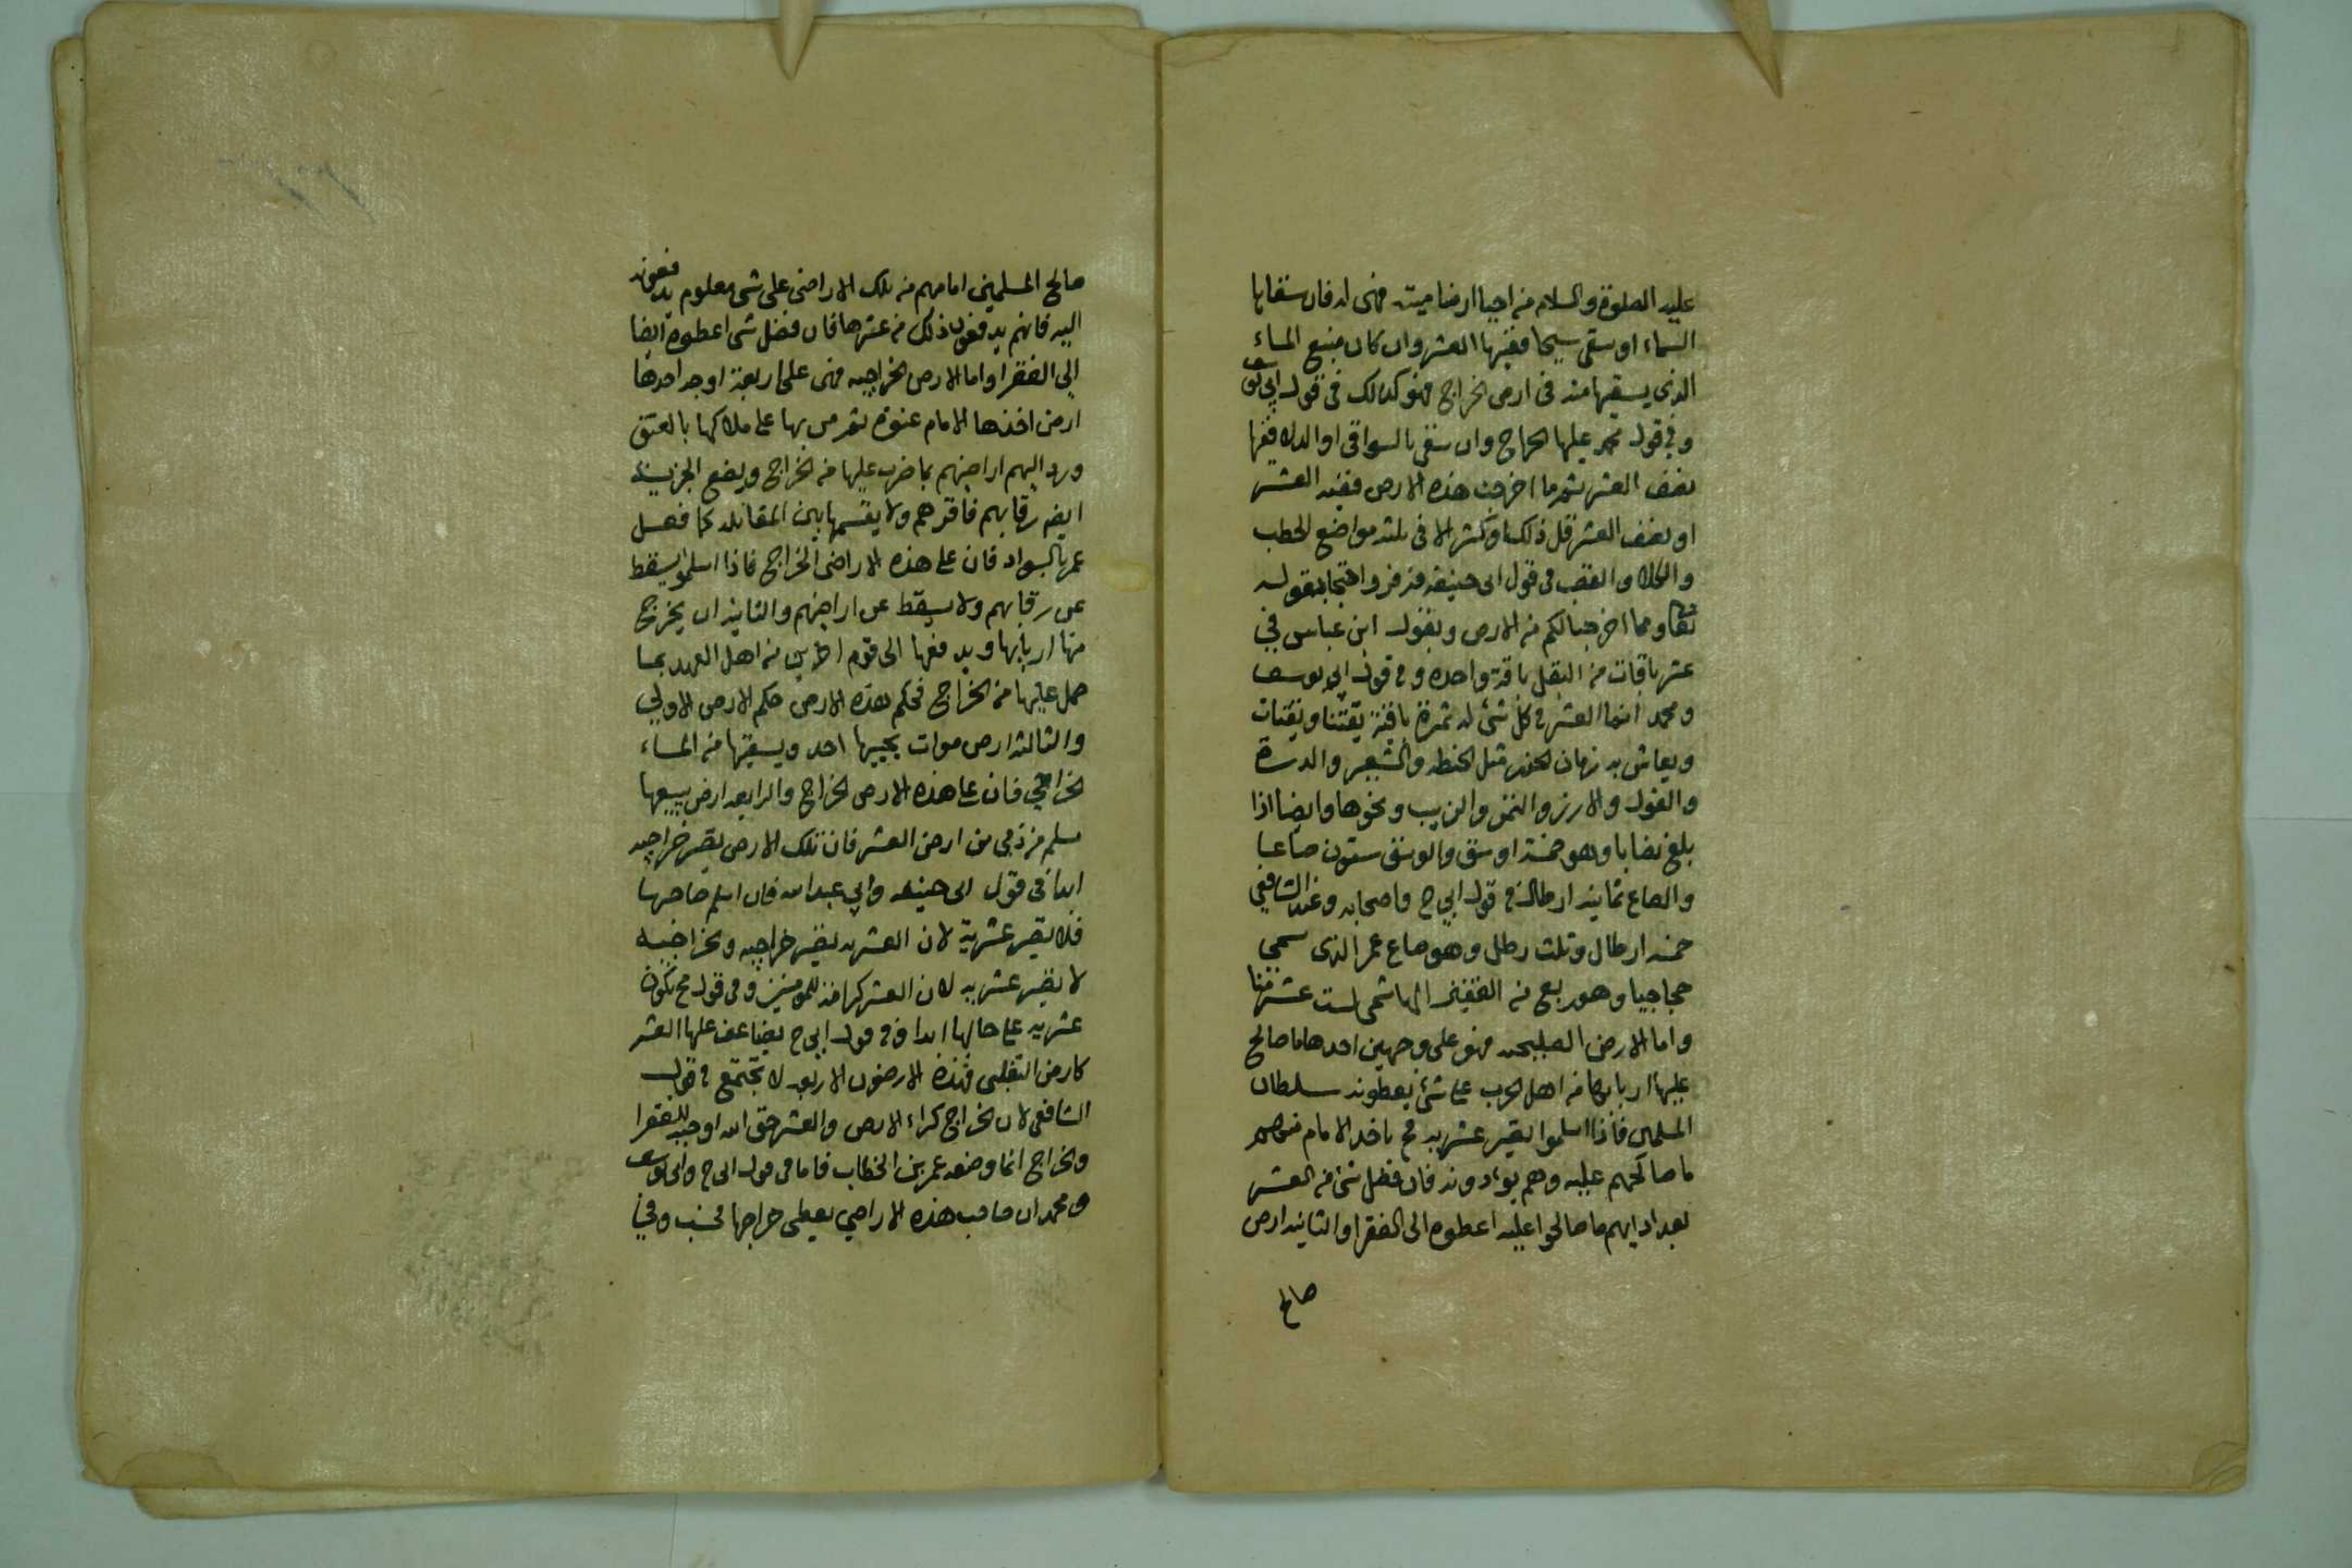 عليه الصلوة والسلام من احيا ارضا ميتة فهى له فان سقاها
السماء او سقى سيحا ففيها العشر وان كان منبع الماء
الذى يسقيها منه فى ارض الخراج فهو كذلك فى قول ابى يوسف
وفى قول محمد عليها الخراج وان سقى بالسواقى او الدلاء ففيها
نصف العشر ثم ما اخرجت هذه الارض ففيه العشر
او نصف العشر قل ذلك او كثر الا فى ثلثه مواضع الحطب
والكلاء والقصب فى قول ابى حنيفه وزفر واحتجا بقوله
تعالى ومما اخرجنا لكم من الارض وبقول ابن عباس فى
عشر باقات من البقل باقة واحده وفى قول ابى يوسف
ومحمد انما العشر فى كل شئ له ثمرة باقية يقتنا ويقتات
ويعاش به زمان مثل الحنطه والشعير والذرة
والفول والارز والتمر والزبيب ونحوها وايضا اذا
بلغ نصابا وهو خمسة اوسق والوسق ستون صاعا
والصاع ثمانيه ارطال فى قول ابى ح واصحابه وعند الشافعى
خمسه ارطال وثلث رطل وهو صاع عمر الذى سمى
حجاجيا وهو ربع من القفيز الهاشمى لست عشر منا
واما الارض الصلحيه فهى على وجهين احدها ما صالح
عليها اربابها من اهل الحرب على شئ يعطونه سلطان
المسلمين فاذا اسلموا يصير عشريه فح ياخذ الامام منهم
ما صالحهم عليه وهم يؤدونه فان فضل شئ من العشر
بعد ادايهم ما صالحوا عليه اعطوه الى الفقرا والثانيه ارض
صالح
صالح المسلمين امامهم من تلك الاراضى على شى معلوم يدفعونه
اليه فانهم يدفعون ذلك من عشرها فان فضل شى اعطوه ايضا
الى الفقرا واما الارض الخراجيه فهى على اربعة اوجه احدها
ارض اخذها الامام عنوة ثم من بها على ملاكها بالعتق
ورد اليهم اراضيهم بما ضرب عليها من الخراج ووضع الجزية
رقابهم فاقرهم ولا يقسمها بين المقاتله كما فعل
عمر بالسواد فان على هذه الاراضى الخراج فاذا اسلموا يسقط
عن رقابهم ولا يسقط عن اراضيهم والثانيه ان يخرج
منها اربابها ويدفعها الى قوم اخرين من اهل العهد بما
حمل عليها من الخراج فحكم هذه الارض حكم الارض الاولى
والثالثه ارض موات يحييها احد ويسقيها من الماء
الخراجى فان على هذه الارض الخراج والرابعه ارض يبيعها
مسلم من ذمى من ارض العشر فان تلك الارض يصير خراجيه
ابدا فى قول ابى حنيفه وابى عبد الله فان اسلم صاحبها
فلا يصير عشرية لان العشريه يصير خراجيه والخراجيه
لا يصير عشريه لان العشر للمومنين وفى قول مح يكون
عشريه على حالها ابدا وفى قول ابى ح يضاعف عليها العشر
كارض التغلبى فهذه الارضون الاربعه لا تجتمع فى قول
الشافعى لان الخراج كراء الارض والعشر حق الله اوجبه للفقرا
والخراج انما وضعه عمر بن الخطاب فاما فى قول ابى ح وابى يوسف
ومحمد ان صاحب هذه الاراضى يعطى خراجها فحسب وفى